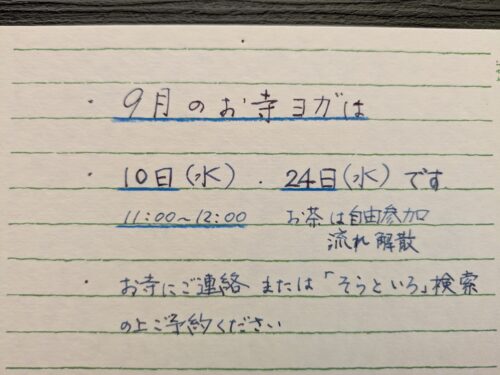 ・9月のお寺ヨガは
・10日(水)・24日(水)です
11:00~12:00 お茶は自由参加
流れ解散
・お寺にご連絡または「そらといろ」検索
の上ご予約ください